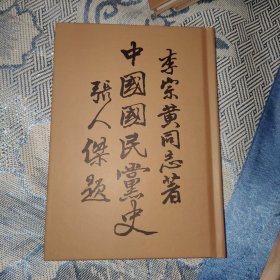 李宗黃同志著
中國國民黨史
張人傑題